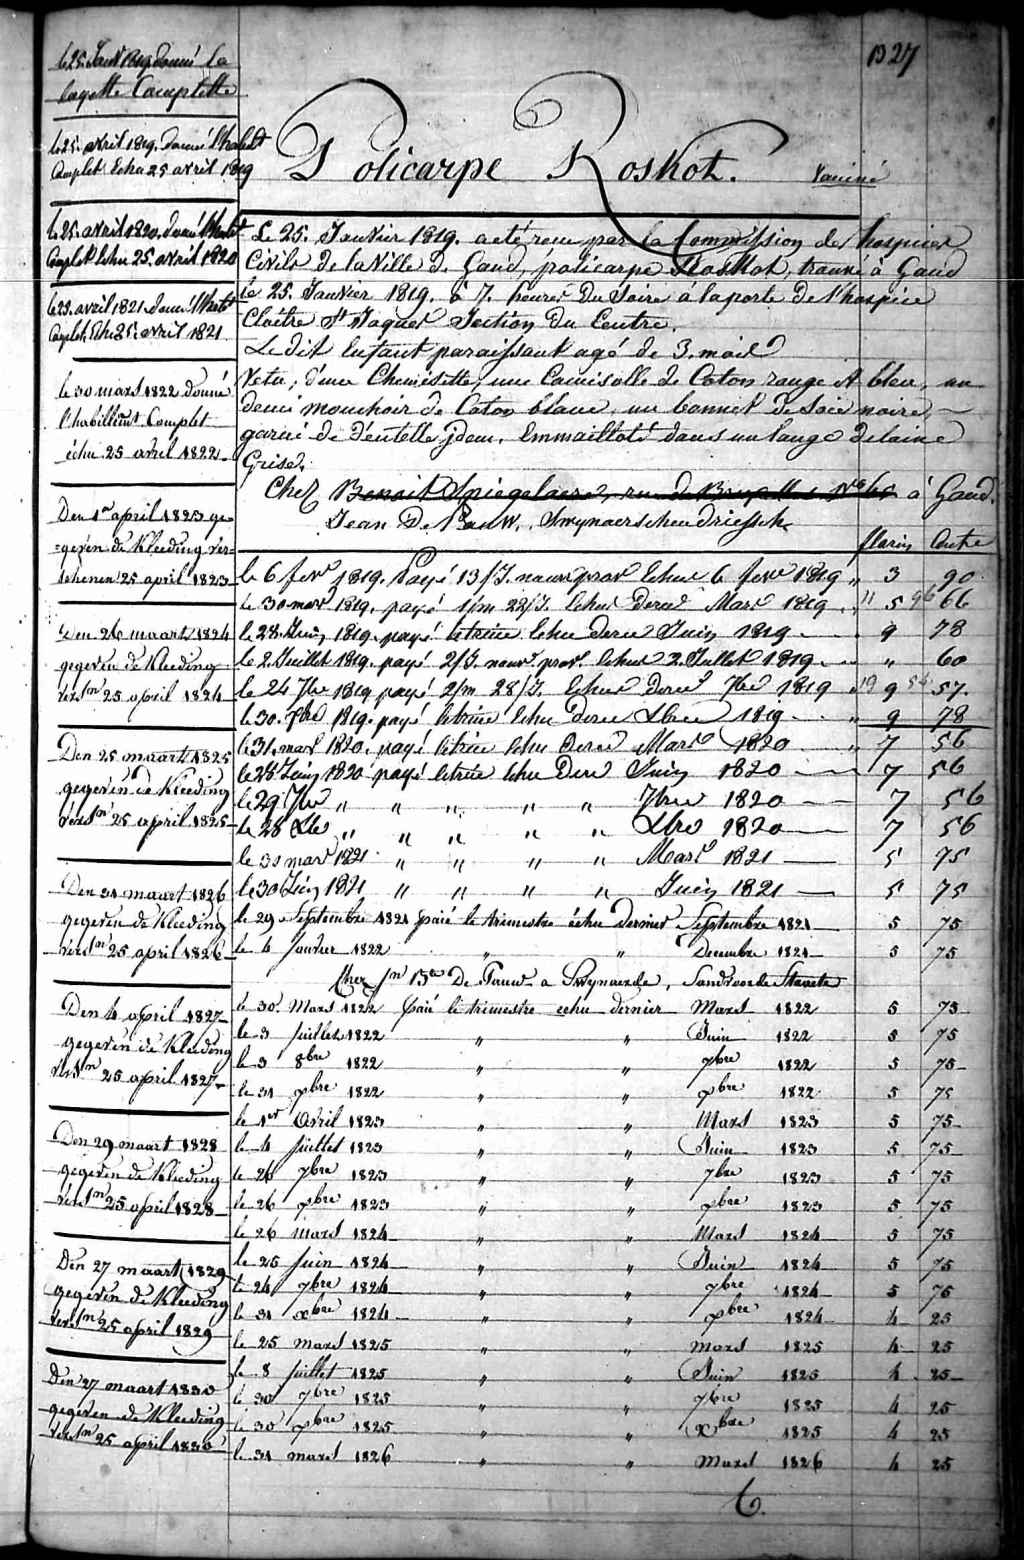 1327
le 25. Janv 1819 donné la
layette Complette
le 25. avril 1819. donné l'habilt
Complet Echu 25 avril 1819
le 25. avril 1820. donné l'habilt
Complet Echu 25. avril 1820
le 25. avril 1821. donné l'habt
Complet Echu 25. avril 1821
le 30 mars 1822 donné
l'habillemt Complet
échu 25 avril 1822
Den 1er april 1823 ge-
=geven de Kleeding ver=
schenen 25 april 1823
Den 26 maart 1824
gegeven de Kleeding
versn 25 april 1824
Den 25 maart 1825
gegeven de Kleeding
versn 25 april 1825
Den 31 maart 1826
gegeven de Kleeding
versn 25 april 1826
Den 4 april 1827
gegeven de Kleeding
versn 25 april 1827
Den 29 maart 1828
gegeven de Kleeding
versn 25 april 1828
Den 27 maart 1829
gegeven de Kleeding
versn 25 april 1829
Den 27 maart 1830
gegeven de Kleeding
versn 25 april 1830
Policarpe Roskot. Vaciné
Le 25. Janvier 1819. a été reçu par la Commission des hospices
Civils de la Ville de Gand, policarpe Roskot, trouvé à Gand
le 25. Janvier 1819. à 7. heures Du Soire à la porte De l'hospice
Cloitre St. Jaques Section Du Centre.
Le dit Enfant paraissant agé de 3. mois
Vetu, d'une Chemisette, une Camisolle de Coton rouge et bleu, un
demi mouchoir de Coton blanc, un bonnet de Soie noire,
garni de Dentelle jdem. Emmailloté dans un lange de laine
Grise.
Chez Benoit Spiegelaere, rue de Bruxelles No 60 à Gand.
Jean De Pauw, Swynaerschen driessch
florins Cents
le 6 fevr 1819. Payé 13/J. nourr prov Echus 6 fevr 1819 " 3 90
le 30 mars 1819. payé 1/m 22/J. Echus Derer Mars 1819 " 5 66
le 28. Juin 1819. payé letrim Echu derer Juin 1819 9 78
le 2. Juillet 1819. payé 2/J. nourr. prov. Echus 2. Juillet 1819 " 60
le 24 7bre 1819 payé 2/m 28/J. Echus Derer 7bre 1819 9 57
le 30. Xbre 1819. payé letrim Echu derer Xbre 1819 " 9 78
le 31. mars 1820. payé letrim Echu Derer Mars 1820 " 7 56
le 28 Juin 1820 payé letrim Echu Derer Juin 1820 7 56
le 29 7bre " " " " " 7bre 1820 7 56
le 28 Xbre " " " " " Xbre 1820 7 56
le 30 mars 1821 " " " " Mars 1821 5 75
le 30 Juin 1821 " " " " Juin 1821 5 75
le 29 Septembre 1821 paié le trimestre échu dernier Septembre 1821 5 75
le 4 Janvier 1822 " " Decembre 1821 5 75
Chez Jn Bte De Pauw a Swynaerde, Sandvoorde
le 30 Mars 1822 paié le trimestre echu dernier Mars 1822 5 75
le 3 juillet 1822 " " Juin 1822 5 75
le 3 8bre 1822 " " 7bre 1822 5 75
le 31 xbre 1822 " " xbre 1822 5 75
le 1er Avril 1823 " " Mars 1823 5 75
le 4 juillet 1823 " " Juin 1823 5 75
le 26 7bre 1823 " " 7bre 1823 5 75
le 26 xbre 1823 " " xbre 1823 5 75
le 26 mars 1824 " " Mars 1824 5 75
le 25 Juin 1824 " " Juin 1824 5 75
le 24 7bre 1824 " " 7bre 1824 5 75
le 31 xbre 1824 " " xbre 1824 4 25
le 25 mars 1825 " " mars 1825 4 25
le 8 juillet 1825 " " Juin 1825 4 25
le 30 7bre 1825 " " 7bre 1825 4 25
le 30 xbre 1825 " " xbre 1825 4 25
le 31 mars 1826 " " mars 1826 4 25